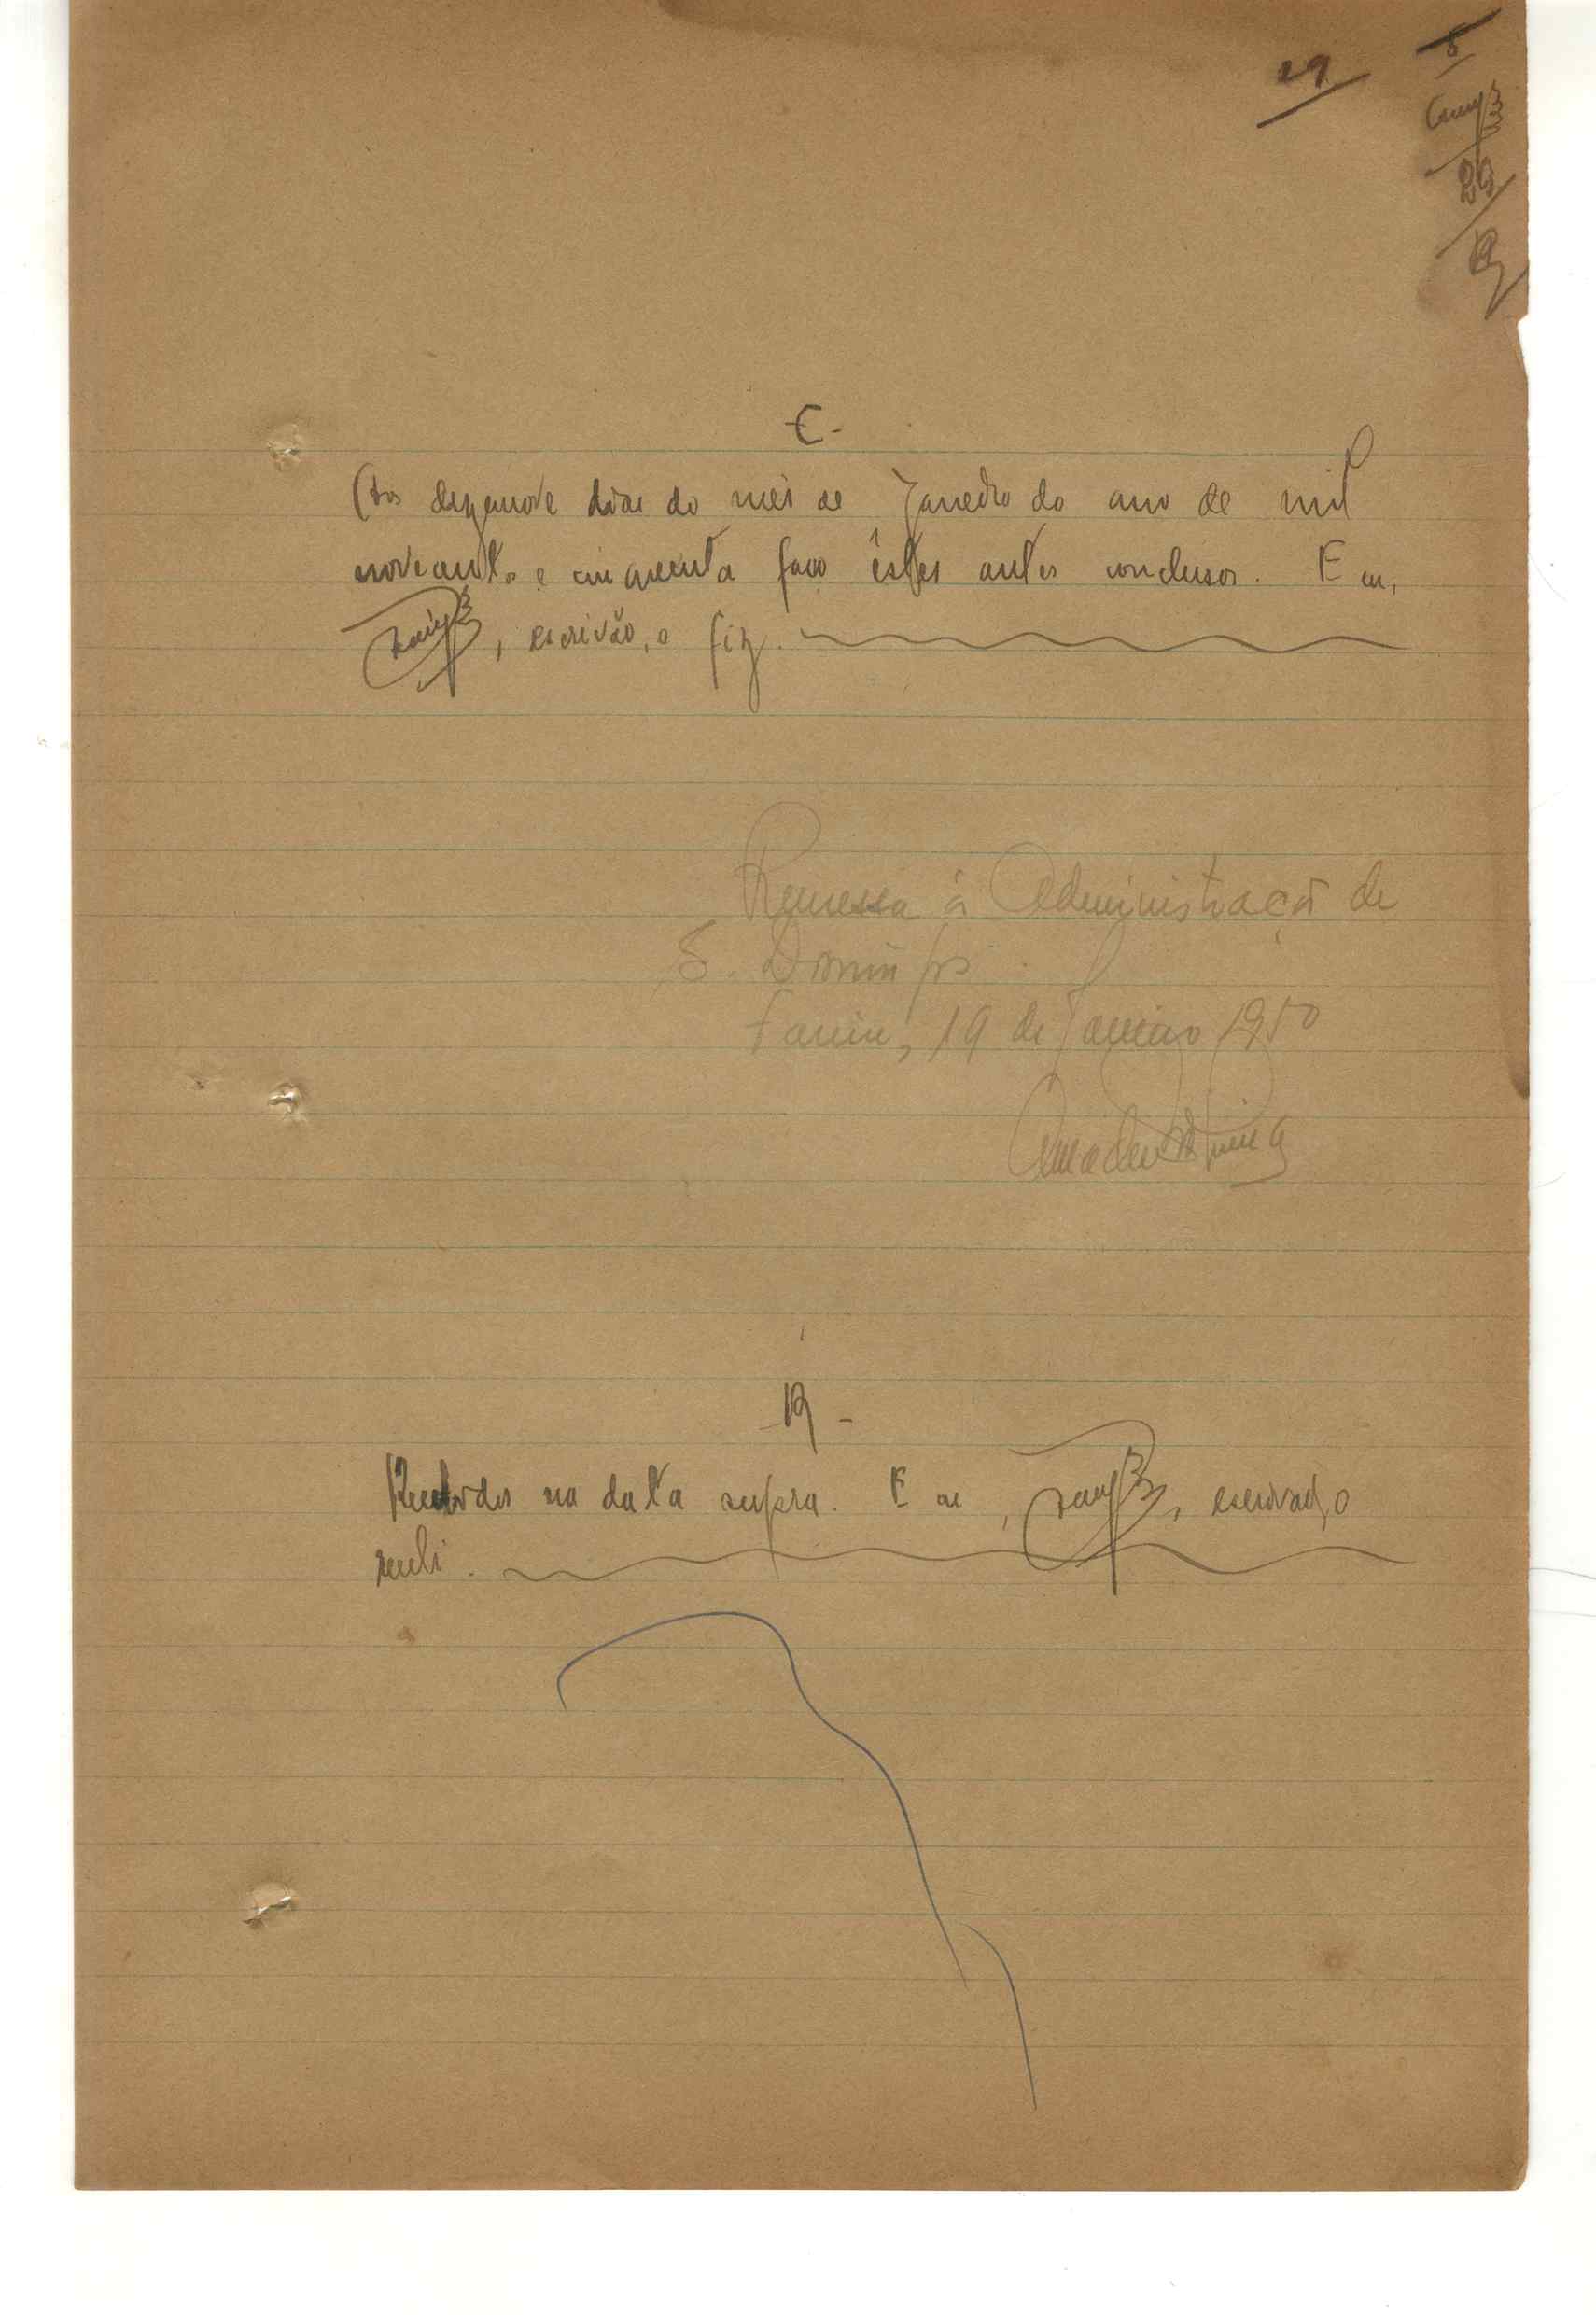 29
5
29
C -
Aos dezanove dias do mês de Janeiro do ano de mil
novecentos e cinquenta faço êstes autos conclusos. E eu,
, escrivão, o fiz.
Remessa à Administração de
S. Domingos.
Farim, 19 de Janeiro 1950
R -
Recebidos na data supra. E eu, , escrivão, o
recebi.